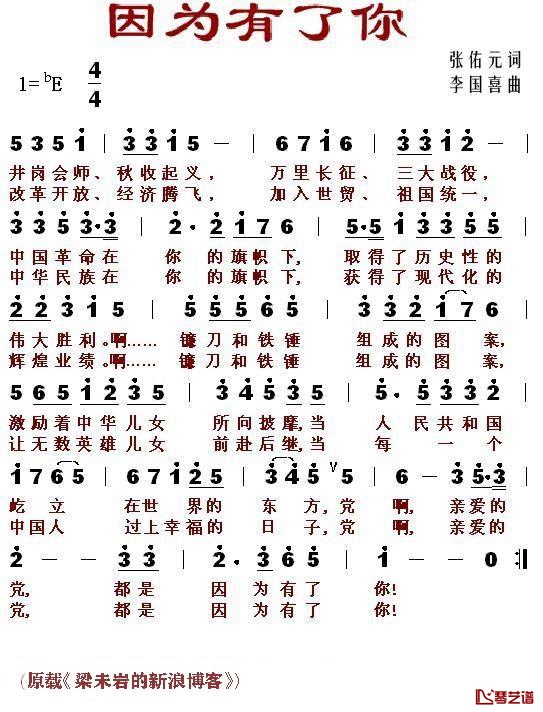 因为有了你
张佑元词
1= ᵇE 4/4
李国喜曲
5 3 5 1 | 3 3 5 1 - | 6 7 1 6 | 3 3 1 2 - |
井岗会师、秋收起义， 万里长征、三大战役，
改革开放、经济腾飞， 加入世贸、祖国统一，
3 3 5 3·3 | 2 · 2 1 7 6 | 5·5 1 3 3 5 5 |
中国革命在 你 的旗帜下， 取得了历史性的
中华民族在 你 的旗帜下， 获得了现代化的
2 2 3 1 5 | 5 5 5 6 5 | 3 3 2 1 7 6 |
伟大胜利。啊……镰刀和铁锤 组成的图案，
辉煌业绩。啊……镰刀和铁锤 组成的图案，
5 6 5 1 2 3 5 | 3 2 3 4 3 5 | 5. 5 3 3 2 |
激励着中华儿女 所向披靡，当 人 民共和国
让无数英雄儿女 前赴后继，当 每 一 个
1 7 6 5 | 1 2 3 1 2 · | 3 4 5 5 V | 6 - 6 5·3 |
屹 立 在世界的 东 方，党 啊，亲爱的
中国人 过上幸福的 日 子，党 啊，亲爱的
2 - - 3 3 | 2 · 3 6 5 | 1 - - 0 :||
党， 都是 因 为有了 你！
党， 都是 因 为有了 你！
（原载《梁未岩的新浪博客》）
琴艺谱